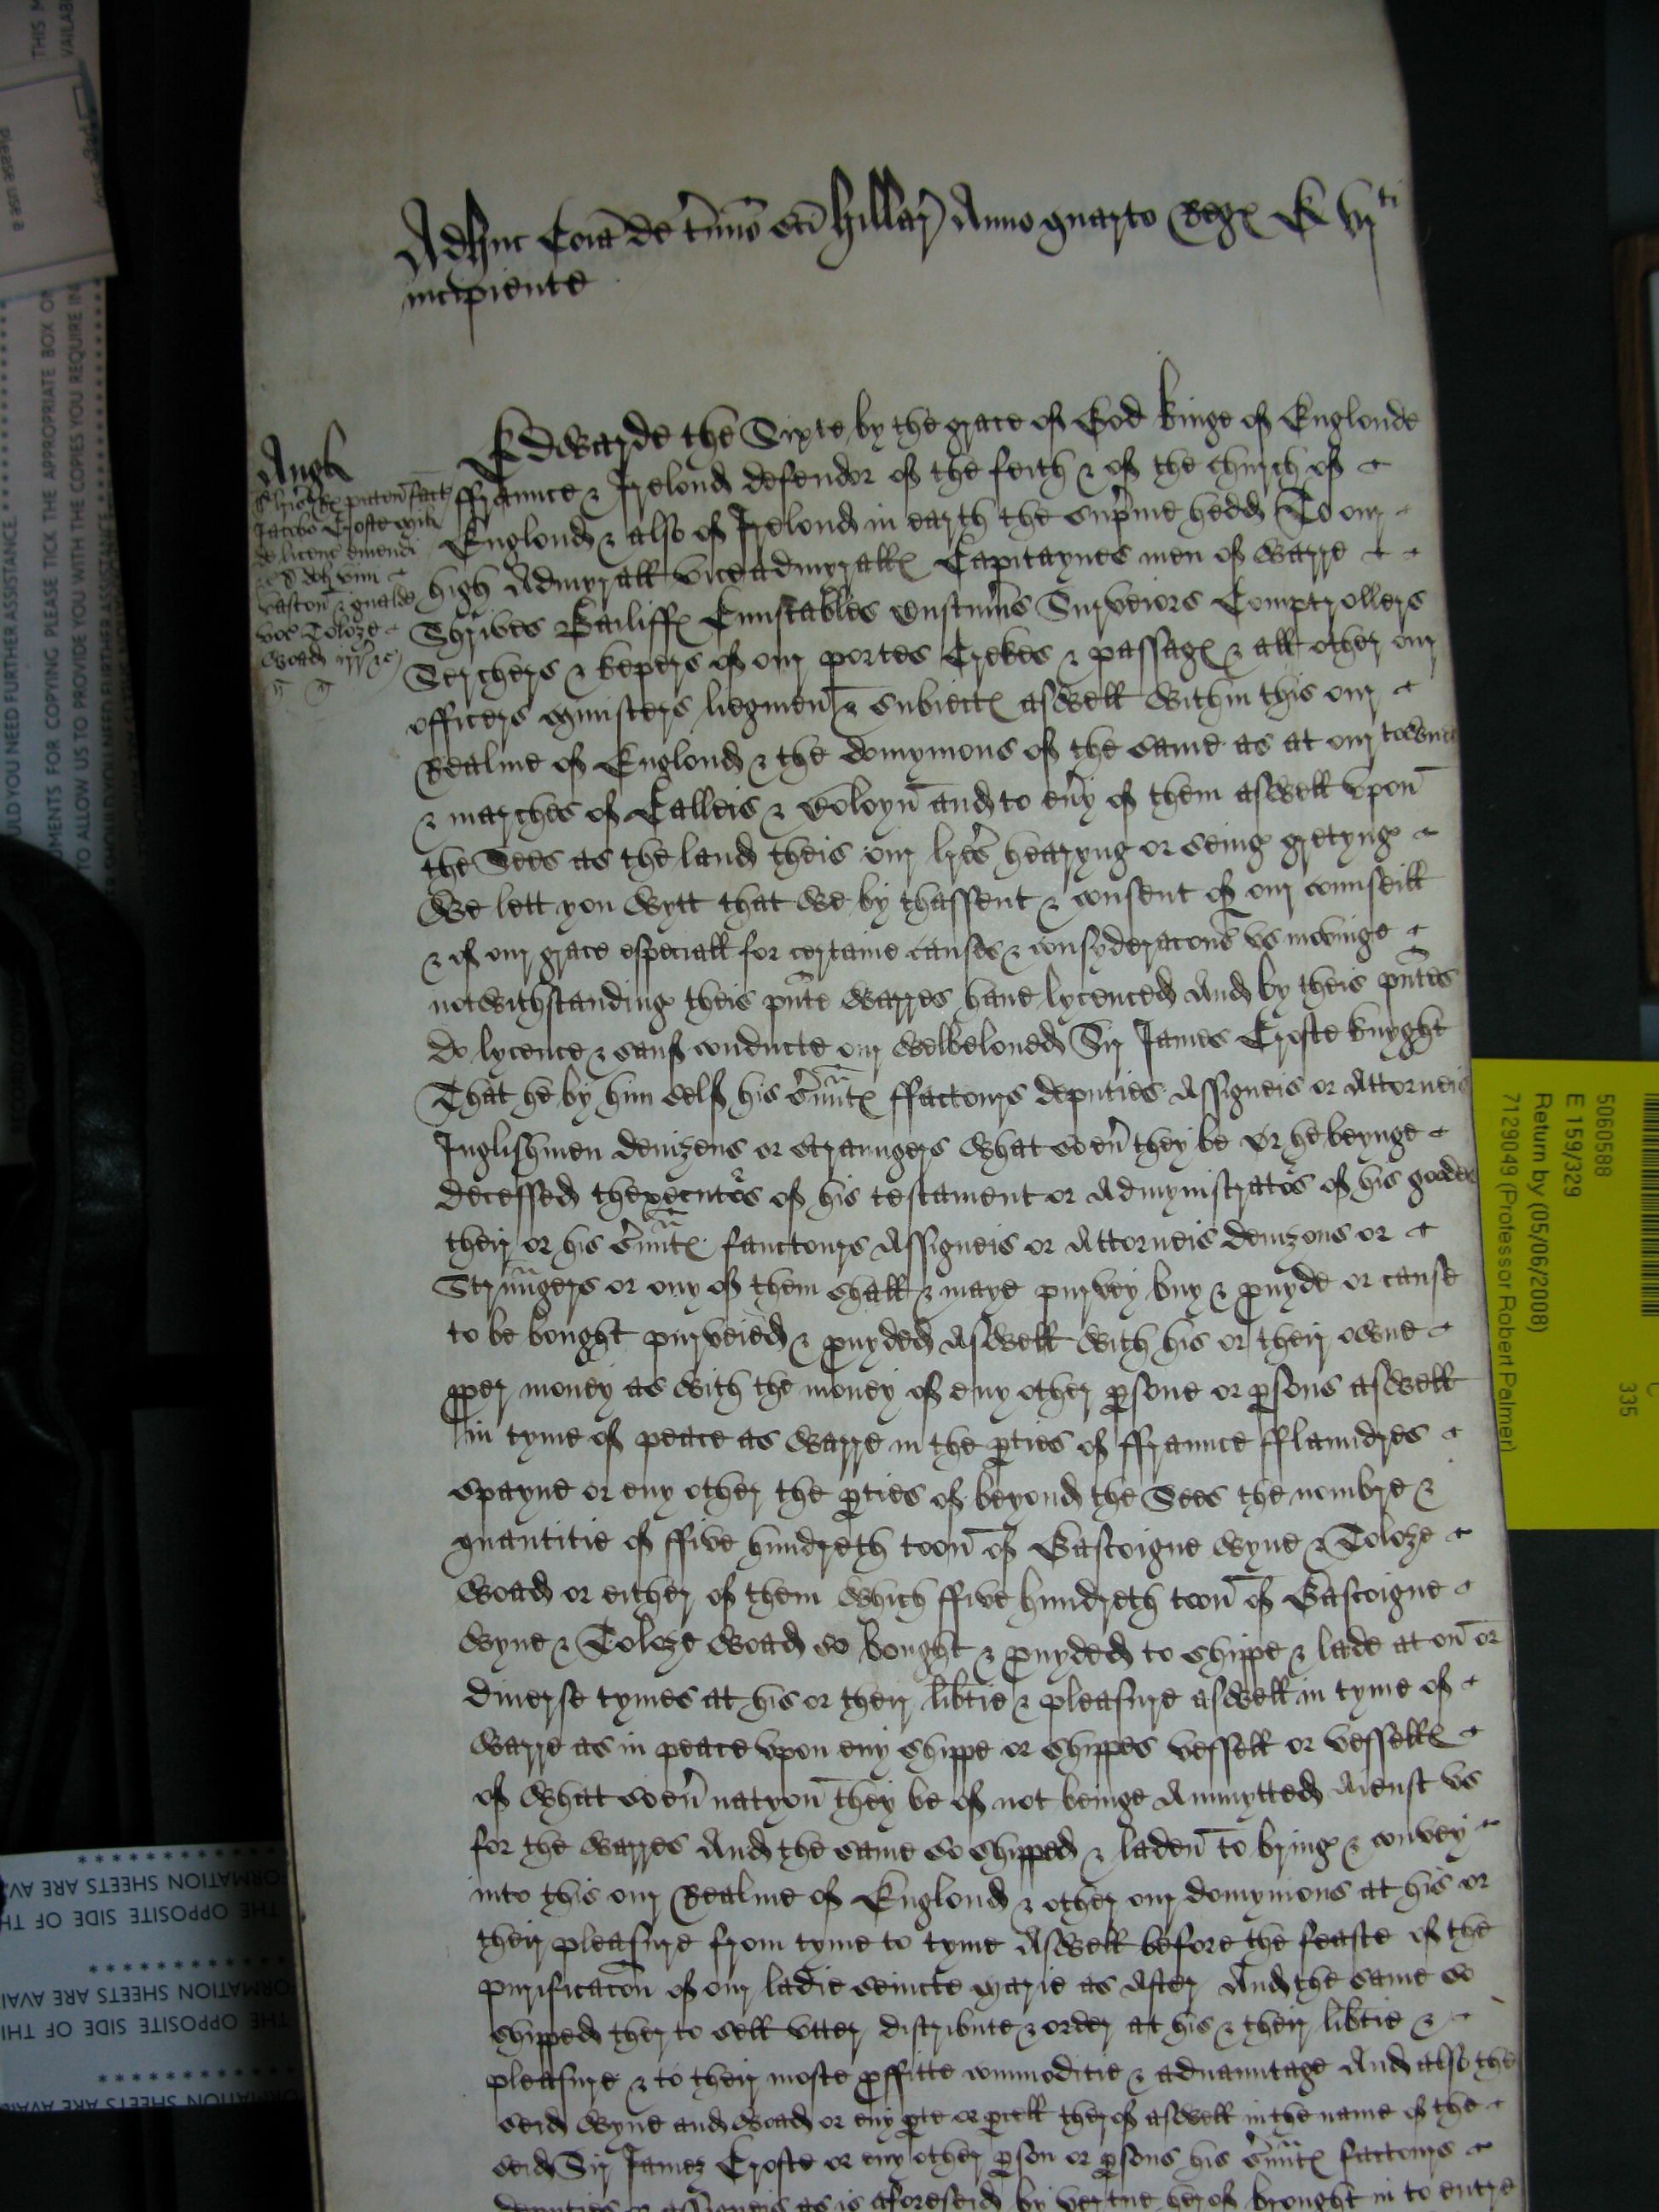 Adhuc Coia de Tmino sci Hillar Anno quarto Reg E vjti
incipiente
Angl
Jacobo Crofte
de licenc emendi
vascon
voc Toloze
Woad
Edwarde the Sixte by the grace of God kinge of Englonde
ffraunce & Irelond defendor of the feith & of the church of
Englond & also of Irelond in earth the supme hedd To our
high Admyrall viceadmyrall Capitaynes men of warre
Shrives Bailiff Cunstables custumrs Surveiors Comptrollers
Serchers & kepers of our portes Crekes & passag & all other our
officers mynisters liegmen & subiect aswell within this our
Realme of Englond & the domynions of the same as at our townes
& marches of Calleis & Boloyn and to evy of them aswell upon
the Sees as the land theis our lres hearyng or seing gretyng
We lett you wytt that we by thassent & consent of our counseill
& of our grace especiall for certaine causes & consyderacons us movinge
notwithstanding theis pnte warres have lycenced And by theis pntes
do lycence & sauf conducte our welbeloued Sir James Crofte knyght
That he by him self his sruunt ffactours deputies Assigneis or Attorneis
Inglishmen denizens or straungers what soevr they be Or he beynge
decessed thexecutors of his testament or Admynistrators of his goodes
their or his sruunt factours Assigneis or Attorneis denizons or
Straungers or eny of them shall & maye purvey buy & puyde or cause
to be bought purveied & puyded Aswell with his or their owne
pper money as with the money of eny other psone or psons aswell
in tyme of peace as warre in the pties of ffraunce fflaundres
spayne or eny other the pties of beyond the Sees the nombre &
quantitie of ffive hundreth toon of Gascoigne wyne & Toloze
woad or either of them which ffive hundreth toon of Gascoigne
wyne & Toloze woad so bought & puyded to shippe & lade at on or
diuerse tymes at his or their libtie & pleasure aswell in tyme of
warre as in peace upon eny shippe or shippes vessell or vessell
of what soevr natyon they be of not beinge Ammytted Aienst us
for the warres And the same so shipped & laden to bring & convey
into this our Realme of Englond & other our domynions at his or
their pleasure from tyme to tyme Aswell before the feaste of the
purificacon of our ladie seincte Marie as After And the same so
shipped ther to sell utter distribute & order at his & their libtie &
pleasure & to their moste pffitte commoditie & aduauntage And also the
seid wyne and woad or eny pte or pcell therof aswell in the name of the
seid Sir James Crofte or eny other pson or psons his sruunt factours
deputies or assigneis as is aforeseid by vertue herof brought in to entre
5060588
E 159/329
Return by (05/06/2008)
7129049 (Professor Robert Palmer)
335
THIS M
VAILAB
please use a
ULD YOU NEED FURTHER ASSISTANCE.
UMENTS FOR COPYING PLEASE TICK THE APPROPRIATE BOX O
TO ALLOW US TO PROVIDE YOU WITH THE COPIES YOU REQUIRE IN
ORMATION SHEETS ARE AV
THE OPPOSITE SIDE OF TH
ORMATION SHEETS ARE AVAI
THE OPPOSITE SIDE OF THI
ORMATION SHEETS ARE AVAI